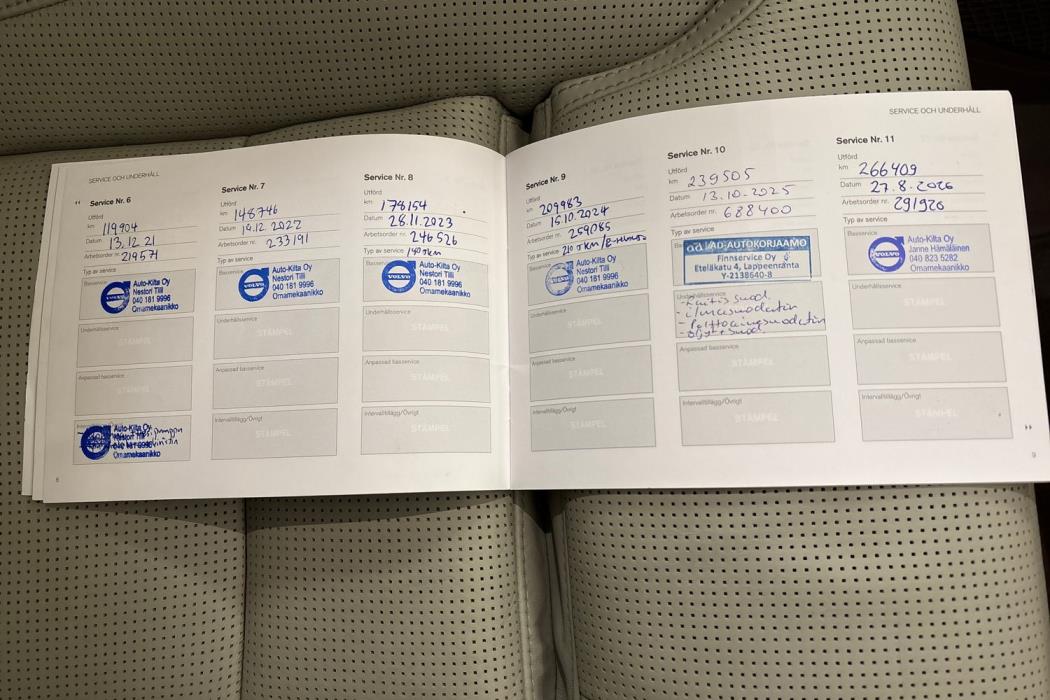 SERVICE OCH UNDERHÅLL
Service Nr. 6
Utförd
km 119904
Datum 13.12.21
Arbetsorder nr. 219571
Typ av service
Auto-Kilta Oy
Nestori Tilli
040 181 9996
Omamekaanikko
VOLVO
Underhållsservice
STÄMPEL
Anpassad basservice
STÄMPEL
Auto-Kilta Oy
Nestori Tilli
040 181 9996
Omamekaanikko
6
Service Nr. 7
Utförd
km 148746
Datum 14.12.2022
Arbetsorder nr. 233191
Typ av service
Basservice
VOLVO
Auto-Kilta Oy
Nestori Tilli
040 181 9996
Omamekaanikko
Underhållsservice
STÄMPEL
Anpassad basservice
STÄMPEL
Intervalltillägg/Övrigt
STÄMPEL
Service Nr. 8
Utförd
km 178154
Datum 28.11.2023
Arbetsorder nr. 246526
Typ av service
Basservice
VOLVO
Auto-Kilta Oy
Nestori Tilli
040 181 9996
Omamekaanikko
Underhållsservice
STÄMPEL
Anpassad basservice
STÄMPEL
Intervalltillägg/Övrigt
STÄMPEL
Service Nr. 9
Utförd
km 209983
Datum 15.10.2024
Arbetsorder nr. 259085
Typ av service 210 tkm
VOLVO
Auto-Kilta Oy
Nestori Tilli
040 181 9996
Omamekaanikko
Underhållsservice
STÄMPEL
Anpassad basservice
STÄMPEL
Intervalltillägg/Övrigt
STÄMPEL
SERVICE OCH UNDERHÅLL
Service Nr. 10
Utförd
km 239505
Datum 13.10.2025
Arbetsorder nr. 688400
Typ av service
AD-AUTOKORJAAMO
Finnservice Oy
Eteläkatu 4, Lappeenranta
Y-2138640-8
Underhållsservice
- ilmansuodatin
- Polttoainesuodatin
Anpassad basservice
STÄMPEL
Intervalltillägg/Övrigt
STÄMPEL
Service Nr. 11
Utförd
km 266409
Datum 27.8.2026
Arbetsorder nr. 291920
Typ av service
Basservice
VOLVO
Auto-Kilta Oy
Janne Hämäläinen
040 823 5282
Omamekaanikko
Underhållsservice
STÄMPEL
Anpassad basservice
STÄMPEL
Intervalltillägg/Övrigt
STÄMPEL
9